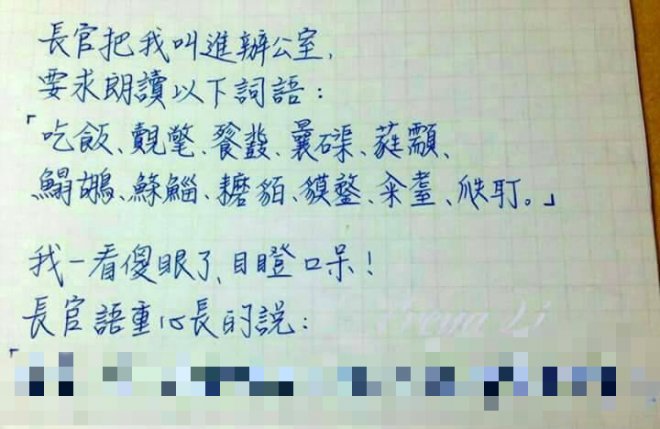 長官把我叫進辦公室,
要求朗讀以下詞語:
「吃飯、覿氅、餮鼗、曩磲、蕤顬、
鰨鶘、鯀鯔、耱貊、貘鏊、汆耋、瓞耵。」
我一看傻眼了,目瞪口呆!
長官語重心長的說:
「